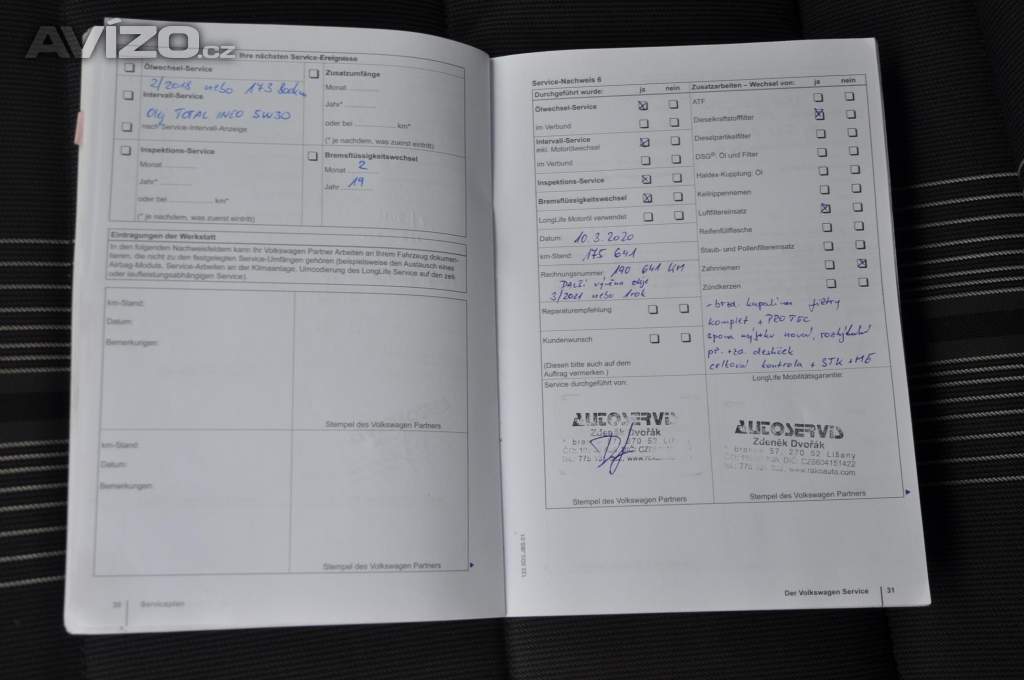 AVÍZO.cz
Ihre nächsten Service-Ereignisse
Ölwechsel-Service
2/2018 nebo 173
Intervall-Service
Olej TOTAL INEO 5W30
nach Service-Intervall-Anzeige
Inspektions-Service
Monat
Jahr*
oder bei km*
(* je nachdem, was zuerst eintritt)
Zusatzumfänge
Monat
Jahr*
oder bei km*
(* je nachdem, was zuerst eintritt)
Bremsflüssigkeitswechsel
Monat 2
Jahr 19
Eintragungen der Werkstatt
In den folgenden Nachweisfeldern kann Ihr Volkswagen Partner Arbeiten an Ihrem Fahrzeug dokumen-
tieren, die nicht zu den festgelegten Service-Umfängen gehören (beispielsweise den Austausch eines
Airbag-Moduls, Service-Arbeiten an der Klimaanlage, Umcodierung des LongLife Service auf den zeit-
oder laufleistungsabhängigen Service).
km-Stand:
Datum:
Bemerkungen:
Stempel des Volkswagen Partners
km-Stand:
Datum:
Bemerkungen:
Stempel des Volkswagen Partners
Serviceplan
Service-Nachweis 6
Durchgeführt wurde: ja nein
Ölwechsel-Service
im Verbund
Intervall-Service
inkl. Motorölwechsel
im Verbund
Inspektions-Service
Bremsflüssigkeitswechsel
LongLife Motoröl verwendet
Datum: 10.3.2020
km-Stand: 175 641
Rechnungsnummer: 190 641 KM
DALŠÍ výměna oleje
3/2021 nebo 1 rok
Reparaturempfehlung
Kundenwunsch
(Diesen bitte auch auf dem
Auftrag vermerken.)
Service durchgeführt von:
AUTOSERVIS
Zdeněk Dvořák
270 52 Lišany
Stempel des Volkswagen Partners
Zusatzarbeiten – Wechsel von: ja nein
ATF
Dieselkraftstofffilter
Dieselpartikelfilter
DSG®: Öl und Filter
Haldex-Kupplung: Öl
Keilrippenriemen
Luftfiltereinsatz
Reifenfüllflasche
Staub- und Pollenfiltereinsatz
Zahnriemen
Zündkerzen
- brzd. kapalina filtry
komplet + PROTEC
př. + za. destiček
celková kontrola + STK + ME
LongLife Mobilitätsgarantie:
AUTOSERVIS
Zdeněk Dvořák
57, 270 52 Lišany
www.rakoauto.com
Stempel des Volkswagen Partners
Der Volkswagen Service 31